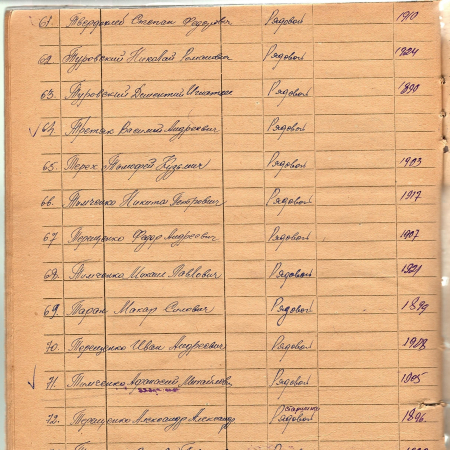 61. Твердохлеб Степан Федорович Рядовой 1910
62. Туровский Николай Романович Рядовой 1924
63. Туровский Дементий Игнатович Рядовой 1890
64. Третяк Василий Андреевич Рядовой
65. Терех Тимофей Кузьмич Рядовой 1903
66. Тимченко Никита Петрович Рядовой 1917
67. Терещенко Федор Андреевич Рядовой 1907
68. Тимченко Михаил Павлович Рядовой 1921
69. Таран Макар Рядовой 1899
70. Терещенко Иван Андреевич Рядовой 1908
71. Тимченко Афанасий Михайлович Рядовой 1905
72. Терещенко Александр Александр Рядовой 1896